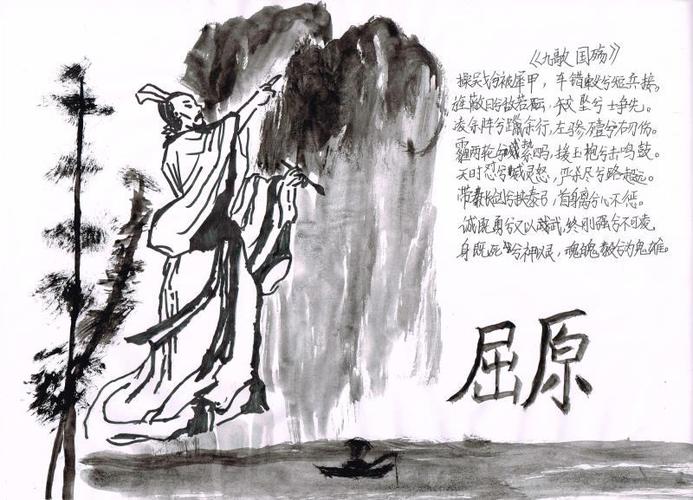 《九歌 国殇》
操吴戈兮被犀甲，车错毂兮短兵接。
旌蔽日兮敌若云，矢交坠兮士争先。
凌余阵兮躐余行，左骖殪兮右刃伤。
霾两轮兮絷四马，援玉枹兮击鸣鼓。
天时怼兮威灵怒，严杀尽兮路超远。
带长剑兮挟秦弓，首身离兮心不惩。
诚既勇兮又以武，终刚强兮不可凌
身既死兮神以灵，魂魄毅兮为鬼雄。
屈原